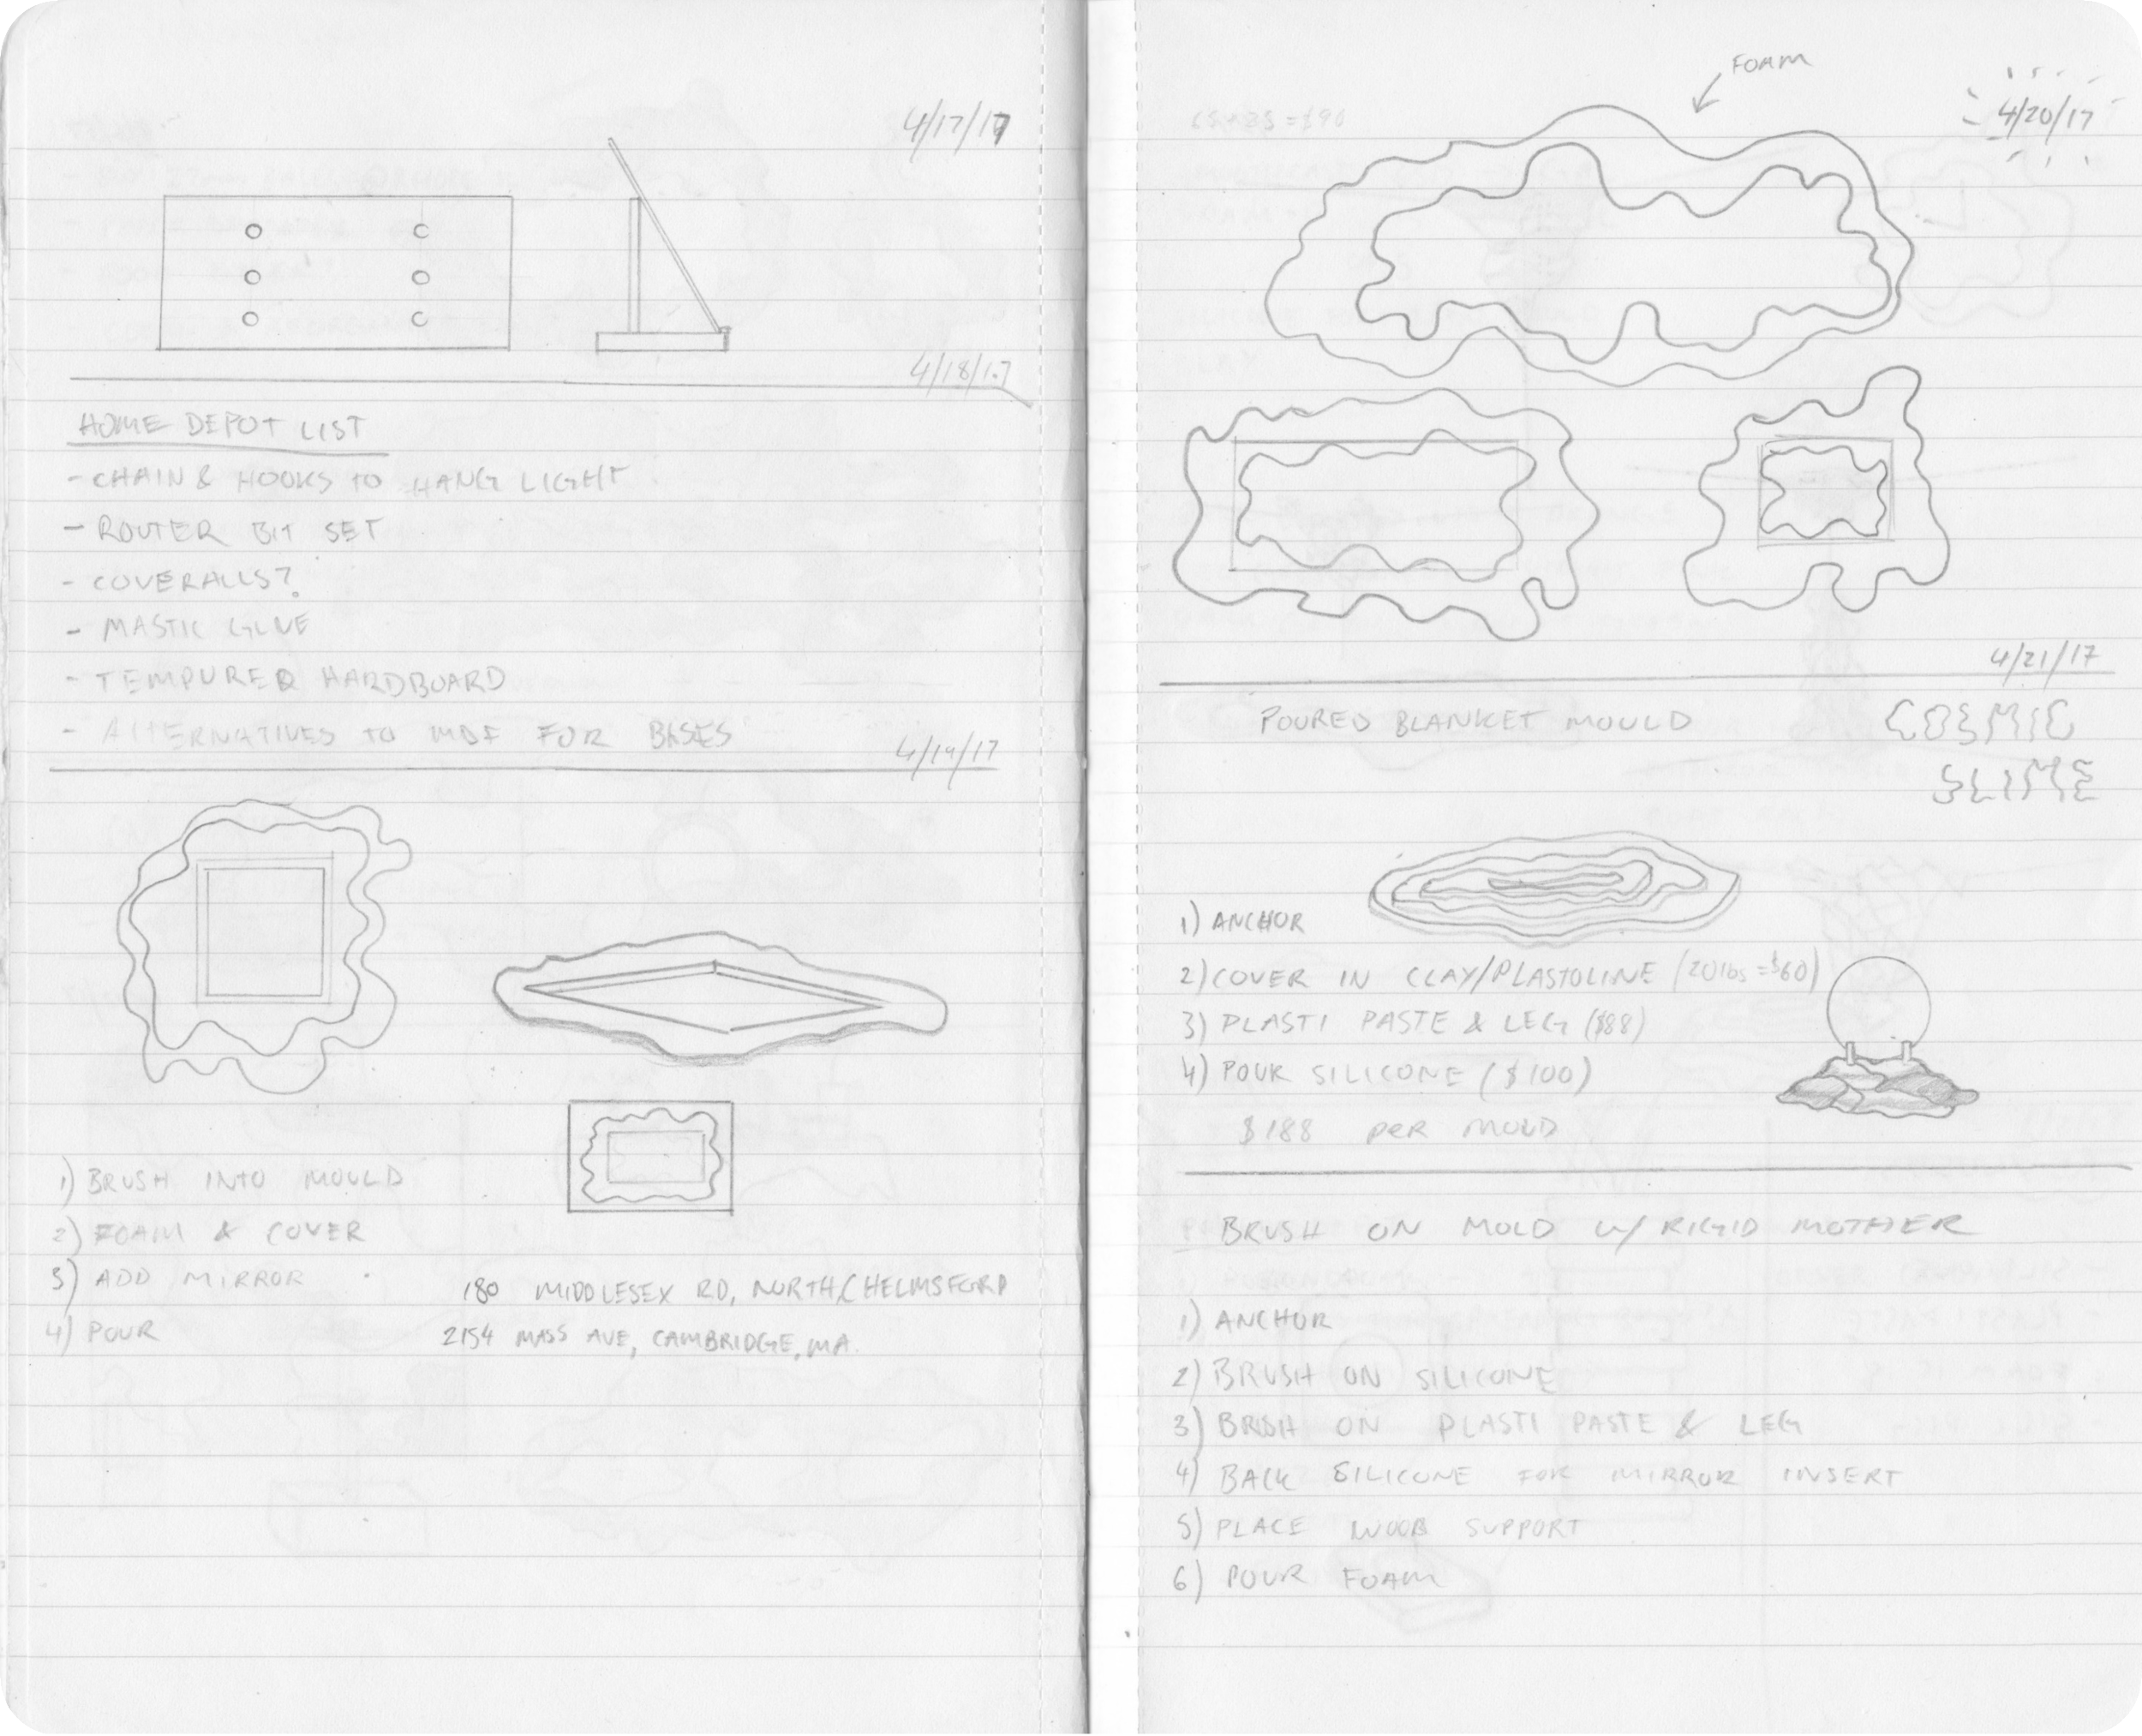 4/17/17
4/18/17
HOME DEPOT LIST
- CHAIN & HOOKS TO HANG LIGHT
- ROUTER BIT SET
- COVERALLS?
- MASTIC GLUE
- TEMPURED HARDBOARD
- ALTERNATIVES TO MDF FOR BASES
4/19/17
1) BRUSH INTO MOULD
2) FOAM & COVER
3) ADD MIRROR
4) POUR
180 MIDDLESEX RD, NORTH CHELMSFORD
2154 MASS AVE, CAMBRIDGE, MA.
FOAM
4/20/17
4/21/17
POURED BLANKET MOULD
COSMIC
SLIME
1) ANCHOR
2) COVER IN CLAY/PLASTOLINE (20lbs = $60)
3) PLASTI PASTE & LEG ($88)
4) POUR SILICONE ($100)
$188 PER MOLD
BRUSH ON MOLD W/ RIGID MOTHER
1) ANCHOR
2) BRUSH ON SILICONE
3) BRUSH ON PLASTI PASTE & LEG
4) BACK SILICONE FOR MIRROR INSERT
5) PLACE WOOD SUPPORT
6) POUR FOAM